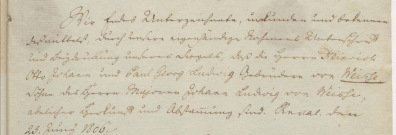 Wir Endes Unterzeichnete, urkunden und bekennen
desmittelst, durch unsere eigenhändige Nahmens Unterschrift
und Beydrückung unseres Siegels, daß die Herren Heinrich
Otto Johann und Carl Georg Ludwig Gebrüdere von Weisse
Söhne des Herrn Majoren Johann Ludwig von Weisse,
adelicher Herkunft und Abstammung sind. Reval. den
25. Juny 1800.